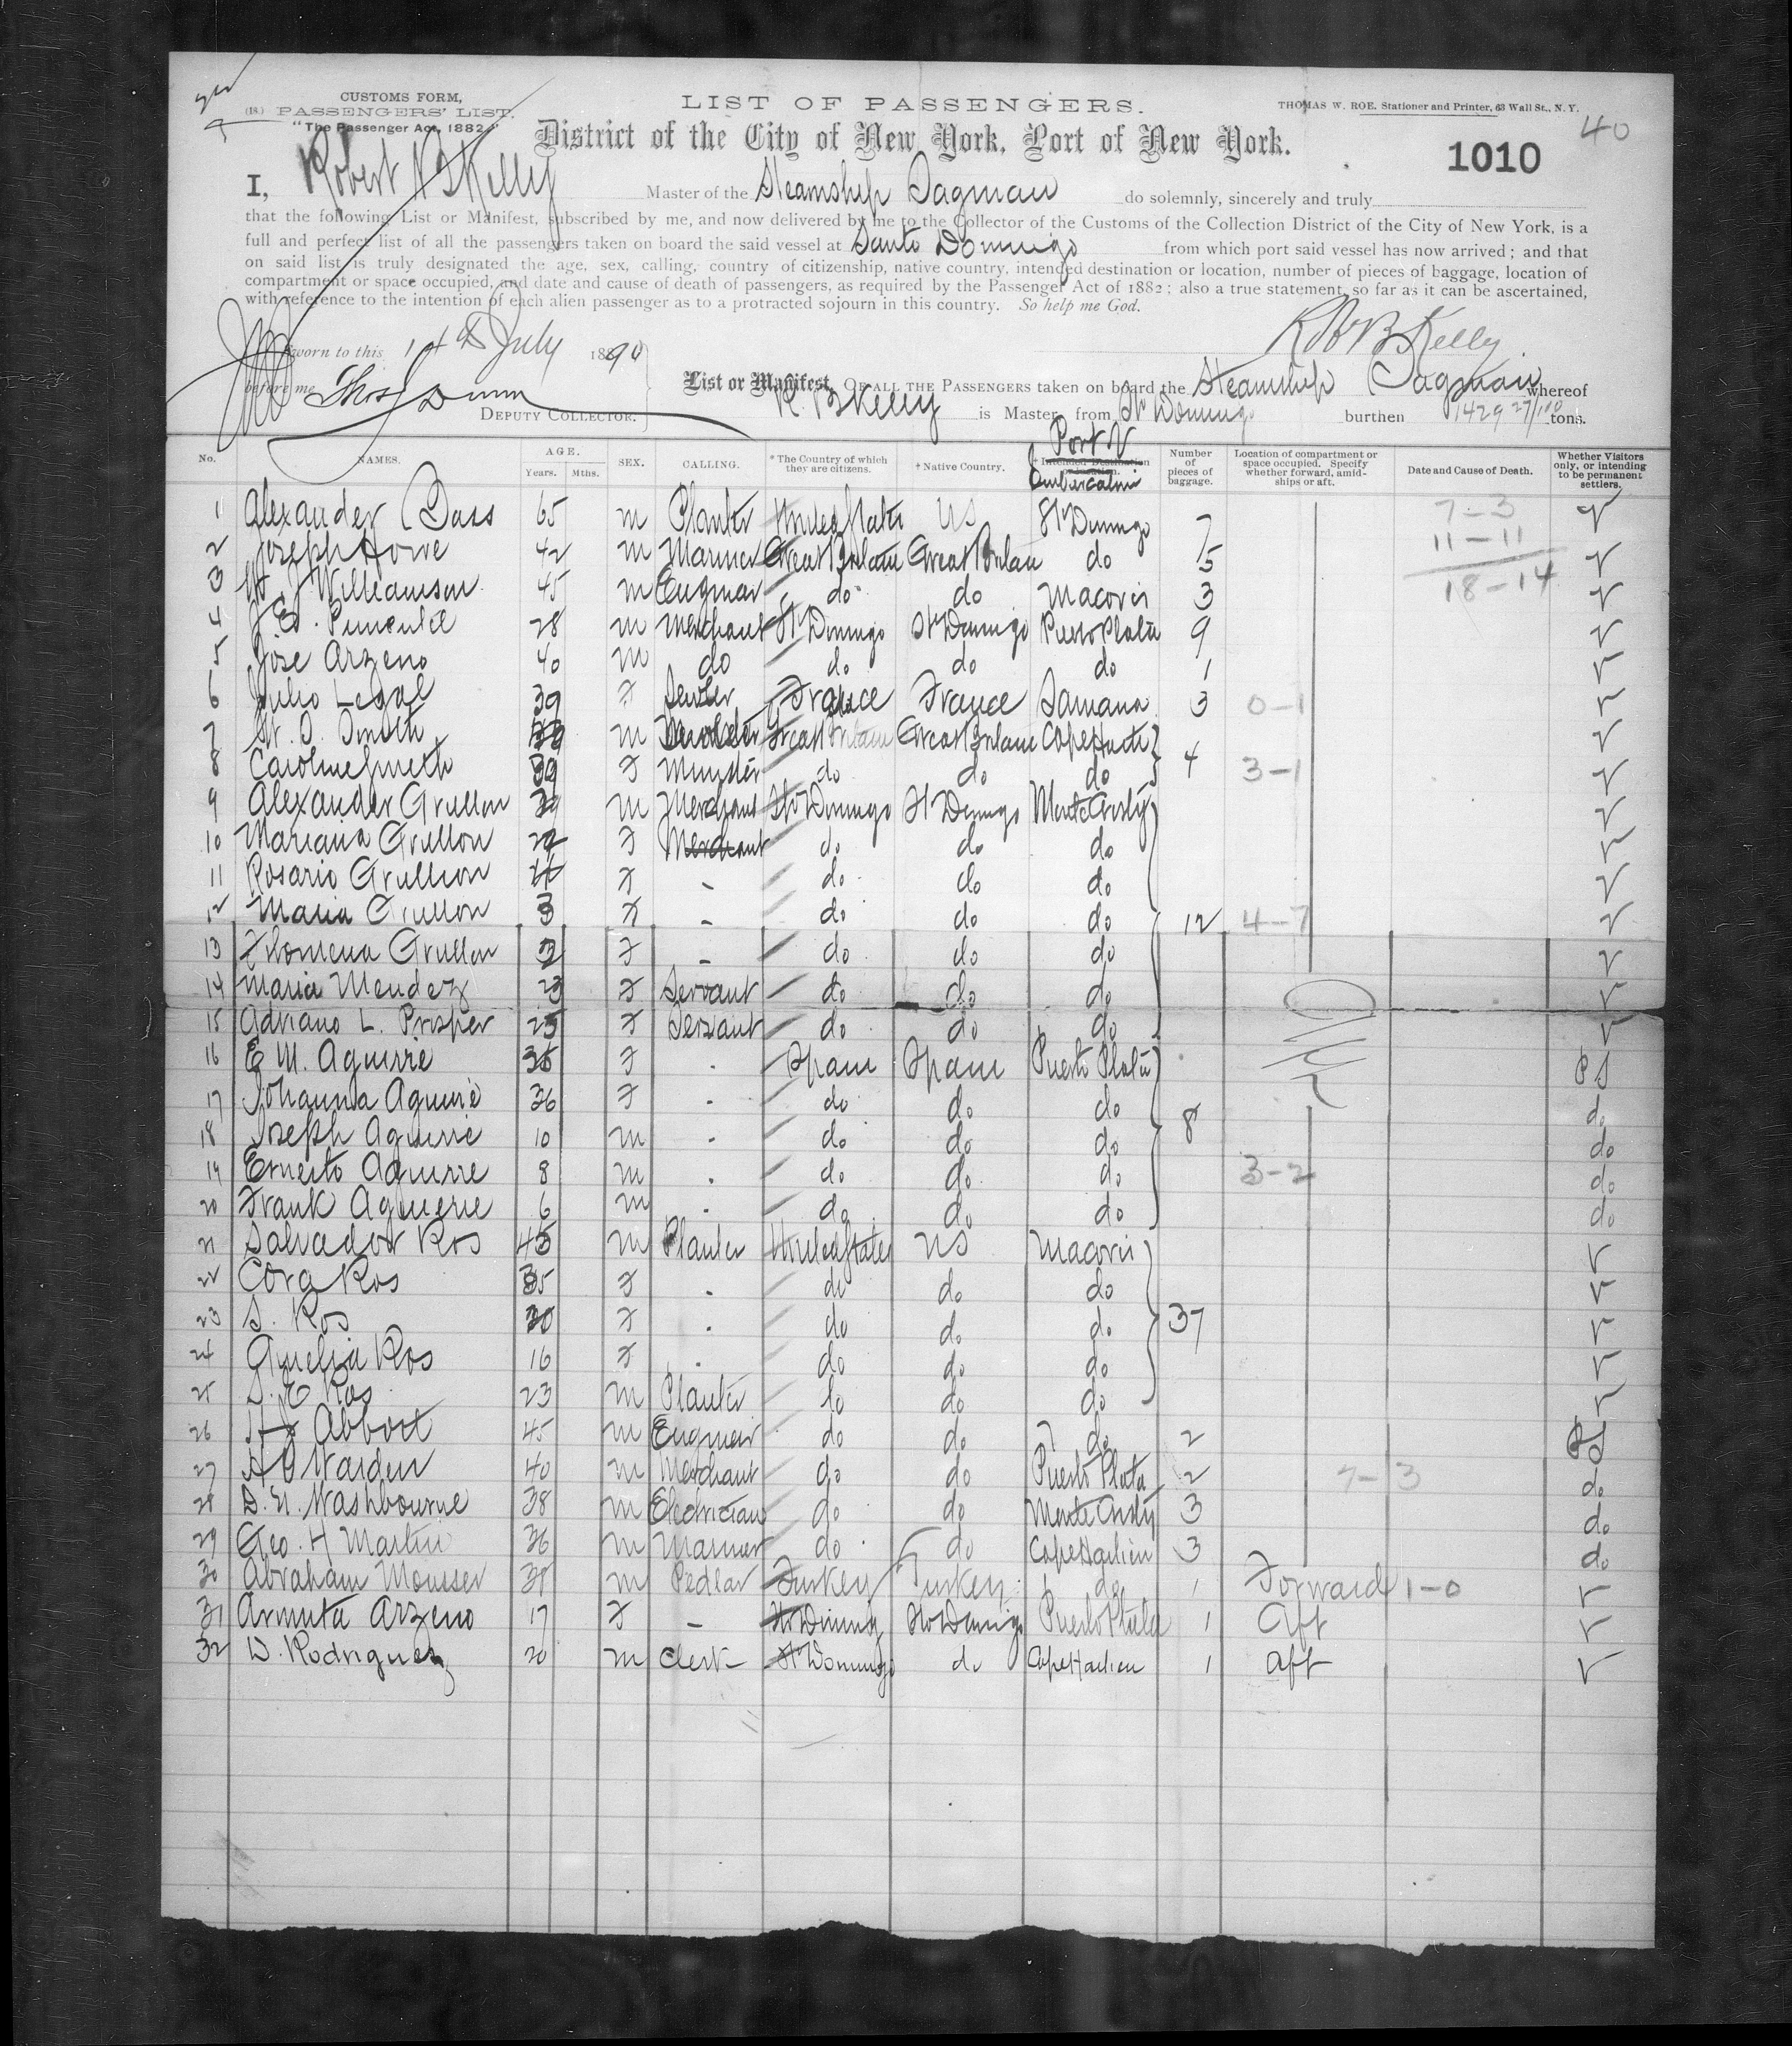 CUSTOMS FORM,
(18.) PASSENGERS' LIST.
"The Passenger Act, 1882."
LIST OF PASSENGERS.
THOMAS W. ROE, Stationer and Printer, 63 Wall St., N. Y.
40
District of the City of New York, Port of New York.
1010
I, Robert B Kelly Master of the Steamship Dagmar do solemnly, sincerely and truly
that the following List or Manifest, subscribed by me, and now delivered by me to the Collector of the Customs of the Collection District of the City of New York, is a
full and perfect list of all the passengers taken on board the said vessel at Santo Domingo from which port said vessel has now arrived; and that
on said list is truly designated the age, sex, calling, country of citizenship, native country, intended destination or location, number of pieces of baggage, location of
compartment or space occupied, and date and cause of death of passengers, as required by the Passenger Act of 1882; also a true statement, so far as it can be ascertained,
with reference to the intention of each alien passenger as to a protracted sojourn in this country. So help me God.
Sworn to this 14th July 1890
before me Thos J Dunn
DEPUTY COLLECTOR.
Kelly
List or Manifest, OF ALL THE PASSENGERS taken on board the Steamship Dagmar whereof
R. B Kelly is Master, from Sto Domingo burthen 1429 27/100 tons.
No. NAMES. AGE. Years. Mths. SEX. CALLING. * The Country of which they are citizens. † Native Country. Port of Embarcation Number of pieces of baggage. Location of compartment or space occupied. Specify whether forward, amidships or aft. Date and Cause of Death. Whether Visitors only, or intending to be permanent settlers.
1 Alexander Bass 65 m Planter United States US St Domingo 7 7-3
2 Joseph Howe 42 m Mariner Great Britain Great Britain do 5 11-11
3 J Williamson 45 m Enginar do do Macoris 3 18-14
4 J E. Pimentel 28 m Merchant St Domingo St Domingo Puerto Plata 9
5 Jose Arzeno 40 m do do do do 1
6 Julio Legal 39 F France France Samana 3 0-1
7 Smith m Great Britain Great Britain Cape Haiti
8 Caroline Smith 39 F do do do 4 3-1
9 Alexander Grullon m Merchant Sto Domingo St Domingo Monte Cristy
10 Mariana Grullon F Merchant do do do
11 Rosario Grullion F - do do do
12 Maria Grullon 3 F - do do do 12 4-7
13 Filomena Grullon F - do do do
14 Maria Mendez 23 F Servant do do do
15 Adriano L. Prosper 25 F Servant do do do
16 E M. Aguirre F Spain Spain Puerto Plata PS
17 Johanna Aguirre 36 F do do do 8 do
18 Joseph Aguirre 10 m do do do do
19 Ernesto Aguirre 8 m do do do 3-2 do
20 Frank Aguierre 6 m do do do do
21 Salvador Ros 45 m Planter United States US Macoris
22 Cora Ros 35 F do do do
23 S. Ros F do do do 37
24 Amelia Ros 16 F do do do
25 S. E Ros 23 m Planter do do do
26 Abbott 45 m Enginar do do do 2
27 Warden 40 m Merchant do do Puerto Plata 2 7-3 do
28 Washbourne 38 m Electrician do do Monte Cristy 3 do
29 Geo. H Martin 36 m Mariner do do Cape Haitien 3 do
30 Abraham Mousser m Pedlar Turkey Turkey do 1 Forward 1-0
31 Armuta Arzeno 17 F - Sto Domingo Sto Domingo Puerto Plata 1 Aft
32 D. Rodriguez 20 m Clerk St Domingo do Cape Haitien 1 aft